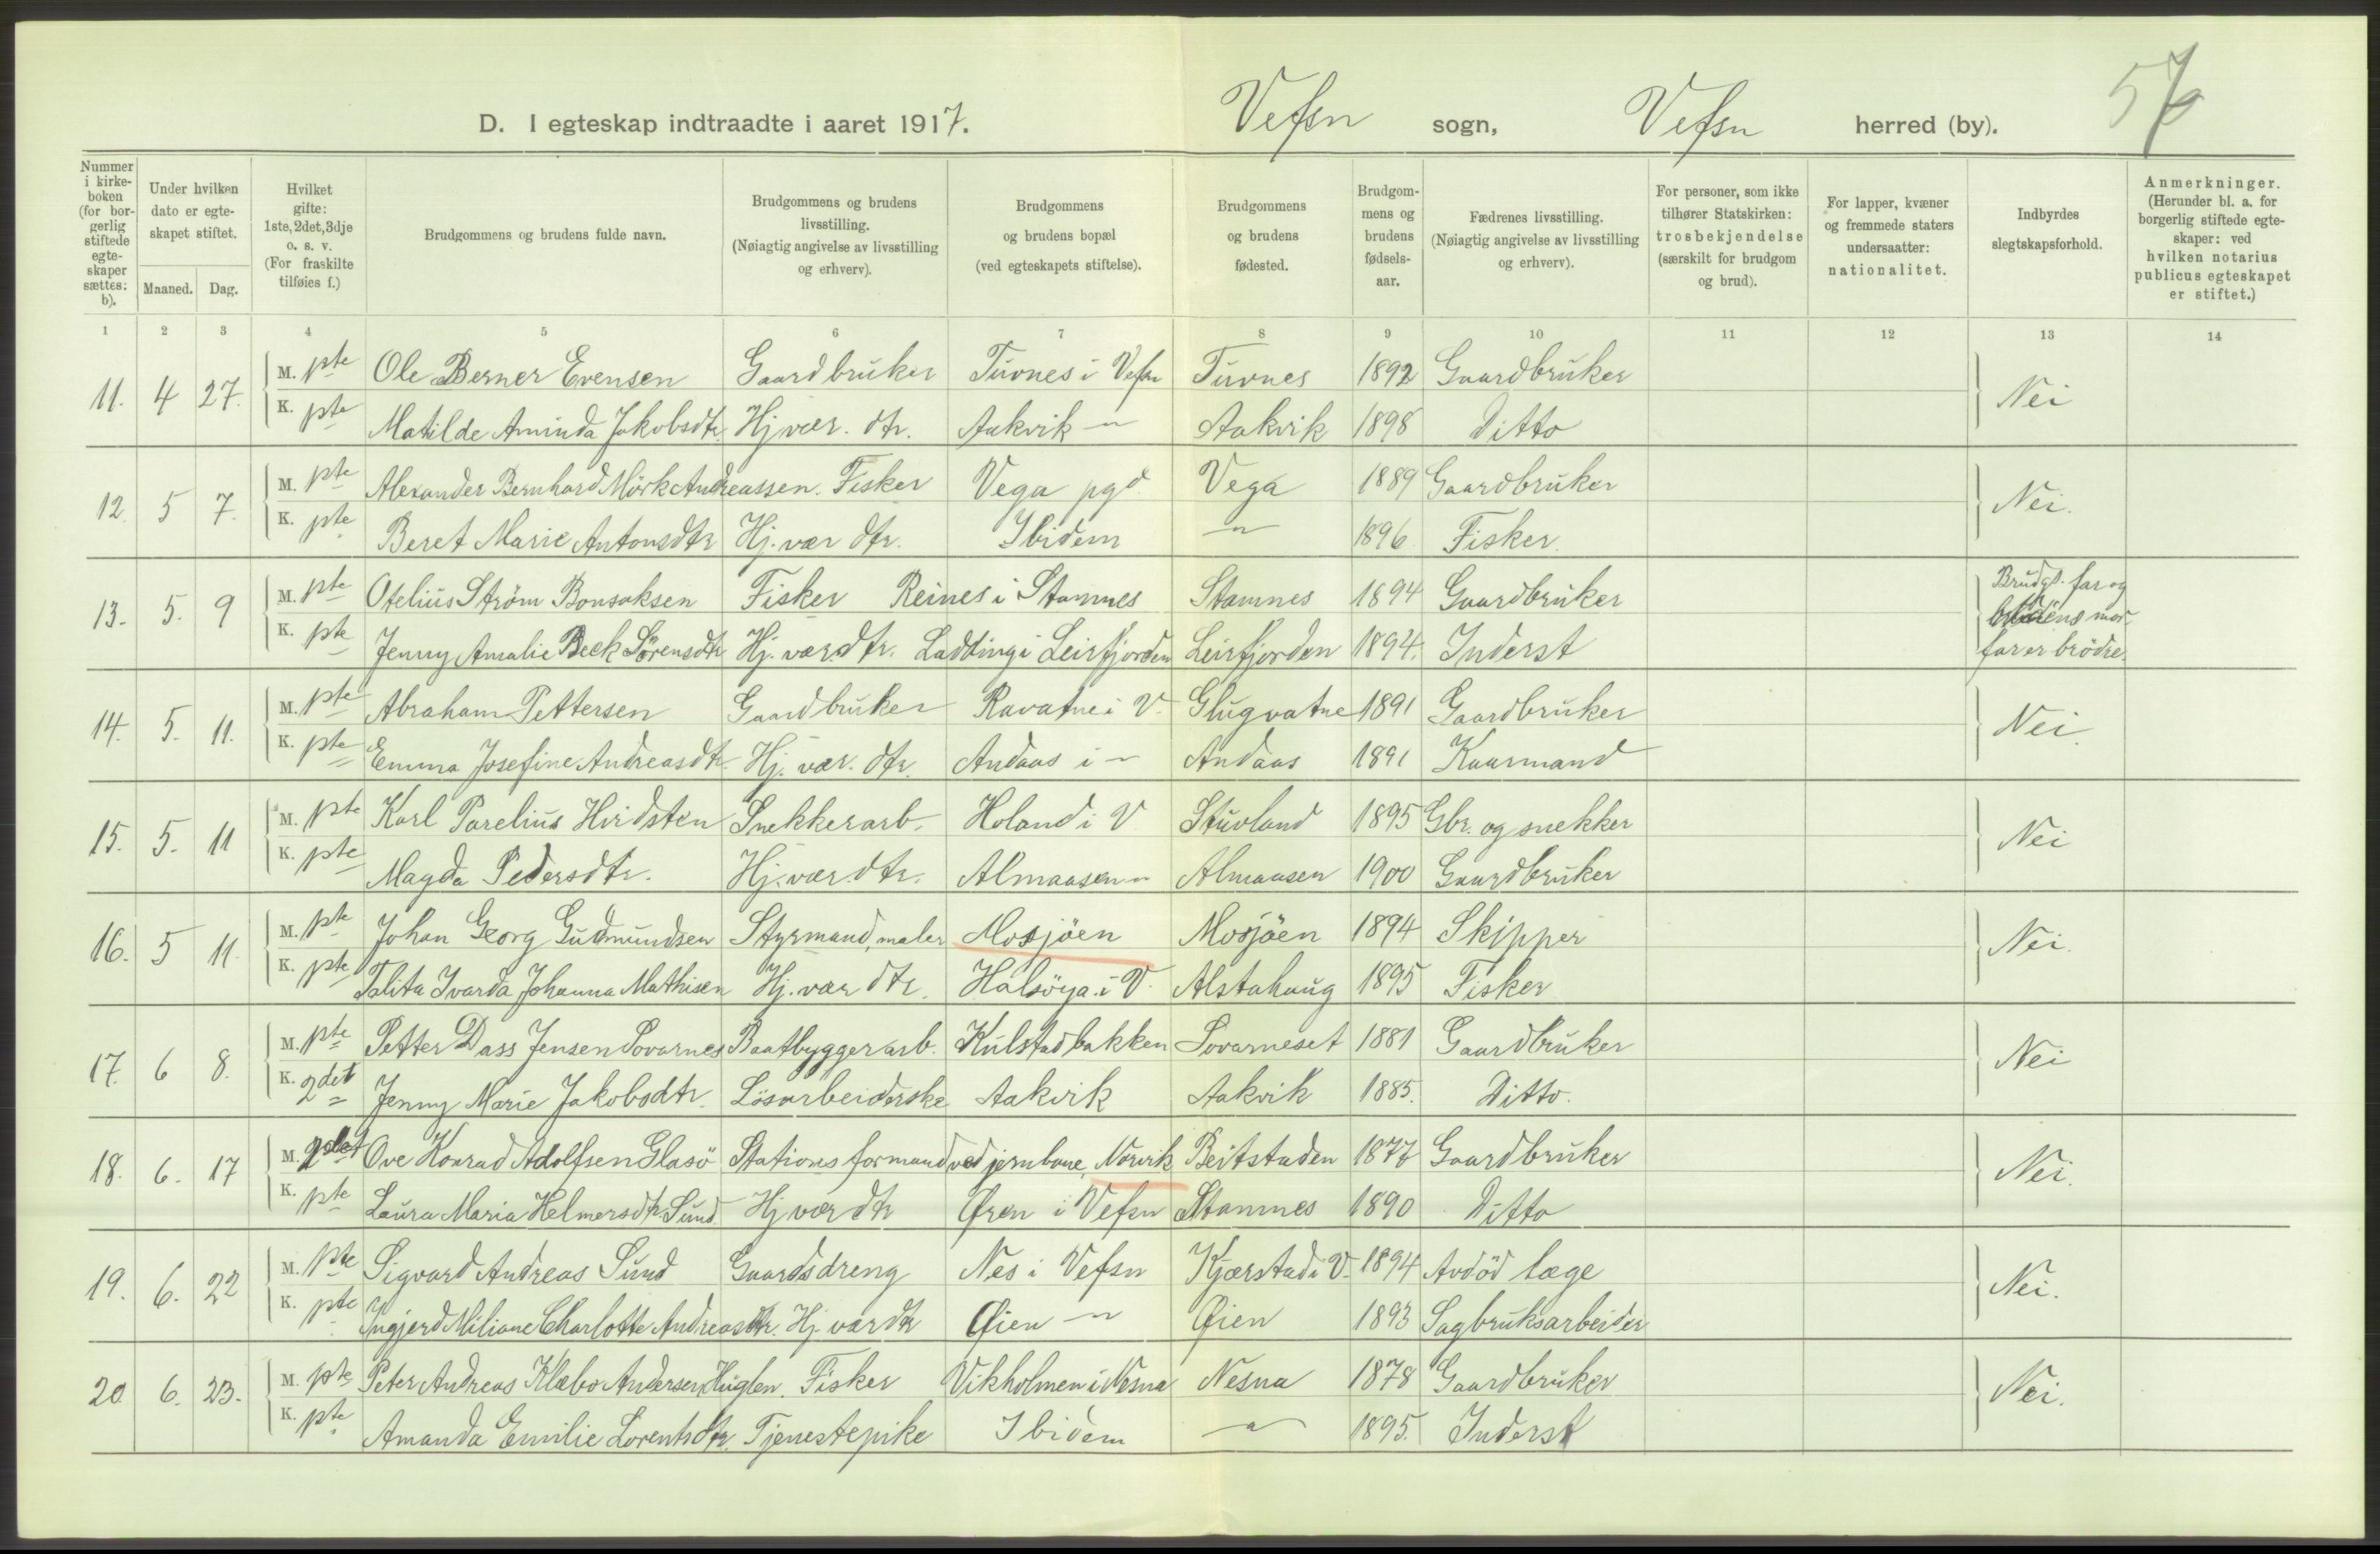 D. I egteskap indtraadte i aaret 1917. Vefsn sogn, Vefsn herred (by).
Nummer i kirkeboken (for borgerlig stiftede egteskaper sættes: b).
Under hvilken dato er egteskapet stiftet.
Maaned. Dag.
Hvilket gifte: 1ste, 2det, 3dje o. s. v. (For fraskilte tilføies f.)
Brudgommens og brudens fulde navn.
Brudgommens og brudens livsstilling. (Nøiagtig angivelse av livsstilling og erhverv).
Brudgommens og brudens bopæl (ved egteskapets stiftelse).
Brudgommens og brudens fødested.
Brudgommens og brudens fødselsaar.
Fædrenes livsstilling. (Nøiagtig angivelse av livsstilling og erhverv).
For personer, som ikke tilhører Statskirken: trosbekjendelse (særskilt for brudgom og brud).
For lapper, kvæner og fremmede staters undersaatter: nationalitet.
Indbyrdes slegtskapsforhold.
Anmerkninger. (Herunder bl. a. for borgerlig stiftede egteskaper: ved hvilken notarius publicus egteskapet er stiftet.)
1 2 3 4 5 6 7 8 9 10 11 12 13 14
11. 4 27. M. pte Ole Berner Evensen Gaardbruker Turnes i Vefsn Turnes 1892 Gaardbruker Nei
K. pte Matilde Aminda Jakobsdtr. Hj vær. dtr. Aakvik — " — Aakvik 1898 Ditto
12. 5 7. M. pte Alexander Bernhard Mörk Andreassen. Fisker Vega pgd. Vega 1889 Gaardbruker Nei.
K. pte Beret Marie Antonsdtr Hj. vær dtr. Ibidem — " — 1896 Fisker.
13. 5. 9 M. pte Otelius Ström Bonsaksen Fisker Reines i Stamnes Stamnes 1894 Gaardbruker Brudg. far og brudens morfar er brödre.
K. pte Jenny Amalie Beck Sörensdtr Hj. vær. dtr. Ladding i Leirfjorden Leirfjorden 1894. Inderst
14. 5. 11. M. pte Abraham Pettersen Gaardbruker Ravatne i V. Glugvatne 1891 Gaardbruker Nei.
K. pte Emma Josefine Andreasdtr. Hj. vær. dtr. Andaas i — " — Andaas 1891 Kaarmand
15. 5. 11 M. pte Karl Parelius Hirdsten Snekkerarb. Holand i V Stuvland 1895 Gbr. og snekker Nei
K. pte Magda Pedersdtr. Hj. vær. dtr. Almaasen — " — Almaasen 1900 Gaardbruker
16. 5 11. M. pte Johan Georg Gudmundsen Styrmand, maler Mosjöen Mosjöen 1894 Skipper Nei.
K. pte Talita Ivarda Johanna Mathisen Hj. vær dtr. Halsöya i V. Alstahaug 1895 Fisker
17. 6 8. M. pte Petter Dass Jensen Sovarnes Baatbyggerarb. Kulstadbakken Sovarneset 1881 Gaardbruker Nei
K. 2det Jenny Marie Jakobsdtr. Lösarbeiderske Aakvik Aakvik 1885. Ditto.
18. 6. 17 M. 2det Ove Konrad Adolfsen Glasö Stationsformand ved jernbane, Narvik Beitstaden 1877 Gaardbruker Nei.
K. pte Laura Maria Helmersdtr Sund Hj vær dtr Øren i Vefsn Stamnes 1890 Ditto
19. 6. 22 M. pte Sigvard Andreas Sund Gaardsdreng Nes i Vefsn Kjærstad i V. 1894 Avdöd læge Nei.
K. pte Ingjerd Miliane Charlotte Andreasdtr. Hj. vær dtr Øien — " — Øien 1893 Sagbruksarbeider
20 6. 23. M. pte Peter Andreas Klæbo Andersen Huglen. Fisker Vikholmen i Nesna Nesna 1878 Gaardbruker Nei.
K. pte Amanda Emilie Lorentsdtr. Tjenestepike Ibidem — " — 1895. Inderst